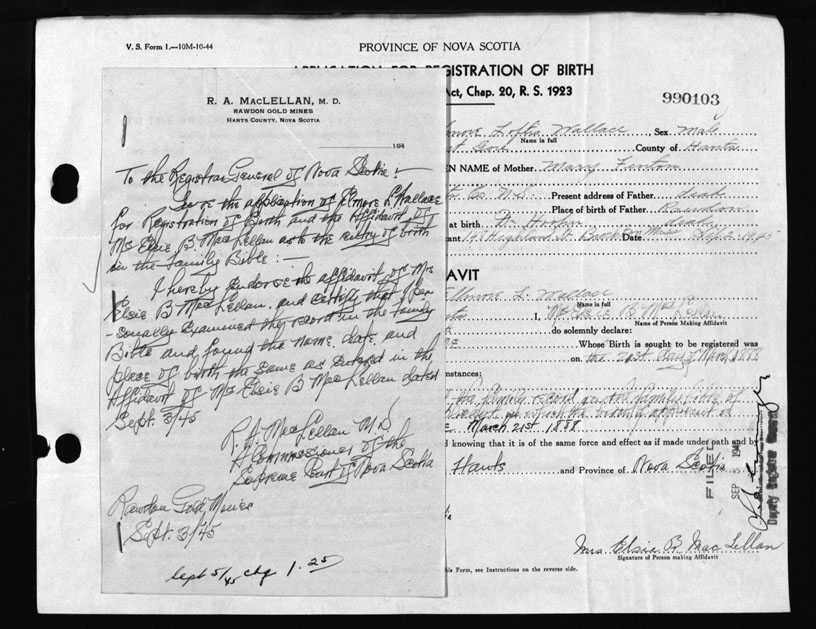 V. S. Form 1.—10M-10-44
PROVINCE OF NOVA SCOTIA
APPLICATION FOR REGISTRATION OF BIRTH
Act, Chap. 20, R. S. 1923
990103
R. A. MacLELLAN, M. D.
RAWDON GOLD MINES
HANTS COUNTY, NOVA SCOTIA
194
To the Registrar General of Nova Scotia:—
In re the application of Elmore L Wallace
for Registration of Birth and the Affidavit of
Mrs Elsie B MacLellan as to the entry of birth
in the Family Bible:—
I hereby endorse the affidavit of Mrs
Elsie B MacLellan, and certify that I per
-sonally examined the record in the family
Bible and found the name, date, and
place of birth the same as entered in the
Affidavit of Mrs Elsie B MacLellan dated
Sept. 3/45
R. A. MacLellan M.D.
A Commissioner of the
Supreme Court of Nova Scotia
Rawdon Gold Mines
Sept. 3/45
Sept 5/45 chq 1.25
Loftis Wallace Sex Male
Name in full
Gore County of Hants
EN NAME of Mother Mary Fenton
Co. N.S. Present address of Father dead
Place of birth of Father Rawdon
at birth Dr.
ant Highland St. Brockton Mass Date Sept. 1945
AVIT
L. Wallace
Name in full
I, Mrs Elsie B MacLellan
Name of Person Making Affidavit
do solemnly declare:
Whose Birth is sought to be registered was
on the 21st day of March 1888
mstances:
the family record in the family bible of
in which the birth of applicant is
March 21st 1888.
d knowing that it is of the same force and effect as if made under oath and by
Hants and Province of Nova Scotia
FILED
SEP 194
Deputy Registrar General
Mrs. Elsie B. MacLellan
Signature of Person making Affidavit
his Form, see Instructions on the reverse side.